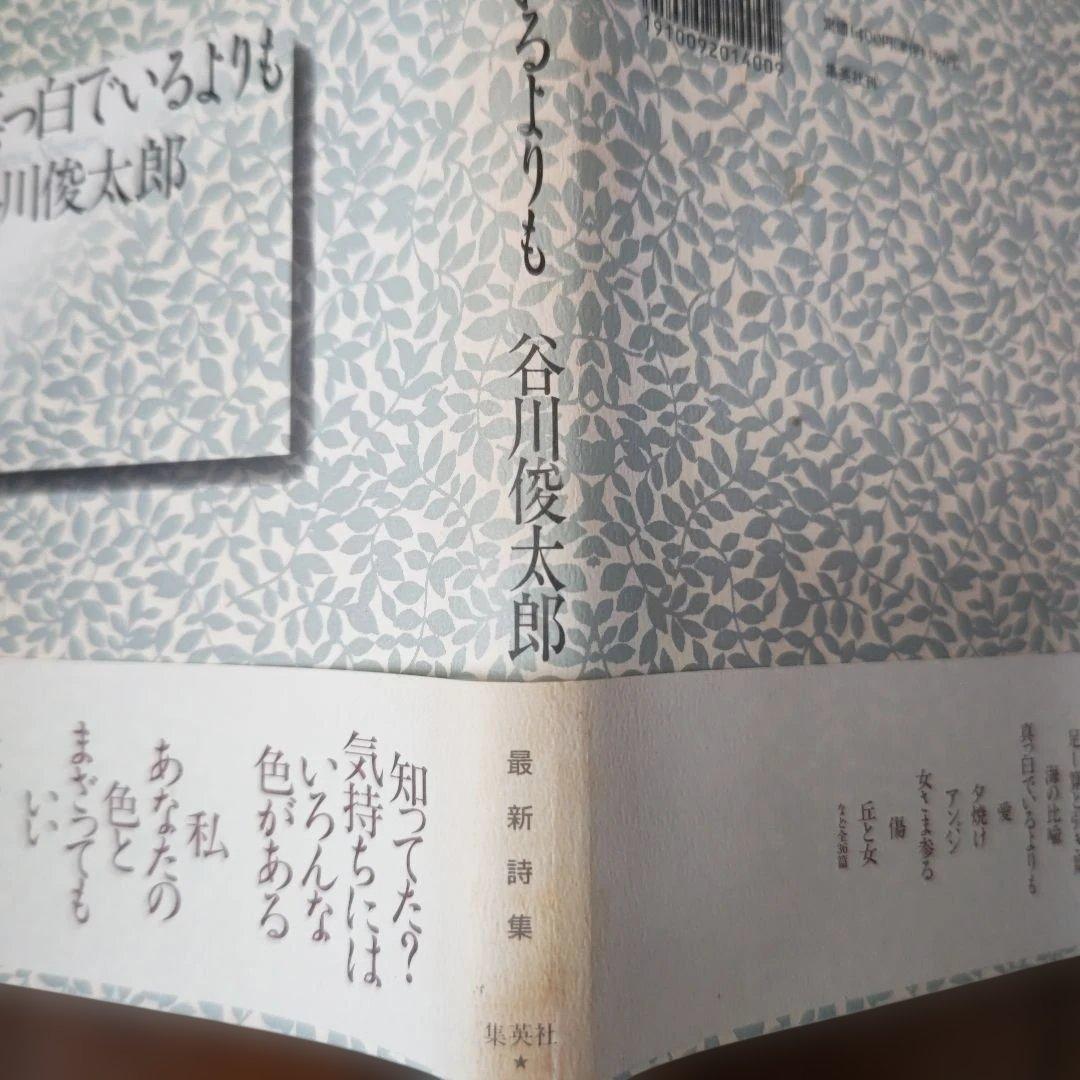 っ白でいるよりも
川俊太郎
るよりも 谷川俊太郎
1910092014009
集英社刊
知ってた?
気持ちには
いろんな
色がある
私
あなたの
色と
まざっても
いい
最新詩集
集英社
★
海の比喩
真っ白でいるよりも
愛
夕焼け
アンパン
女さま参る
傷
丘と女
など全36篇